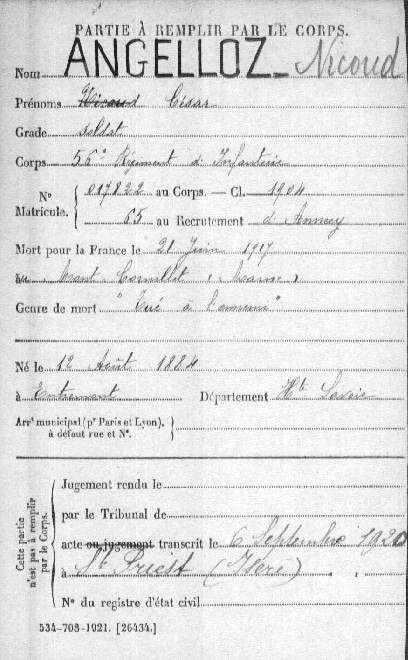 PARTIE À REMPLIR PAR LE CORPS.
Nom ANGELLOZ_ Nicoud
Prénoms Nicoud César
Grade soldat
Corps 56e Régiment d'Infanterie
N° Matricule. { 017822 au Corps. — Cl. 1904
65 au Recrutement d'Annecy
Mort pour la France le 21 Juin 1917
au Mont Cornillet (Marne)
Genre de mort "Tué à l'ennemi"
Né le 12 Août 1884
à Entremont Département Hte Savoie
Arrt municipal (pr Paris et Lyon), à défaut rue et N°. }
Cette partie n'est pas à remplir par le Corps.
Jugement rendu le
par le Tribunal de
acte ou jugement transcrit le 6 Septembre 1920
à St Priest (Isère)
N° du registre d'état civil
534-708-1921. [26434.]